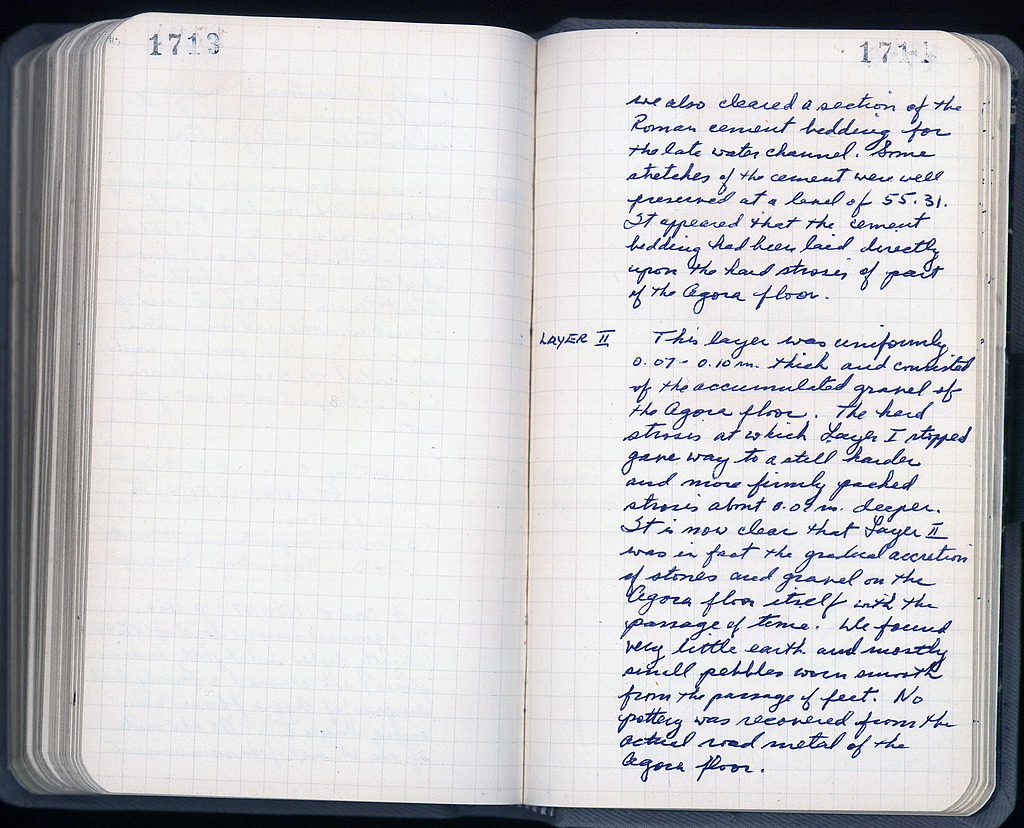 1713
1714
we also cleared a section of the
Roman cement bedding for
the late water channel. Some
stretches of the cement were well
preserved at a level of 55.31.
It appeared that the cement
bedding had been laid directly
upon the hard strosis of part
of the Agora floor.
LAYER II This layer was uniformly
0.07 - 0.10 m. thick and consisted
of the accumulated gravel of
the Agora floor. The hard
strosis at which Layer I stopped
gave way to a still harder
and more firmly packed
strosis about 0.09 m. deeper.
It is now clear that Layer II
was in fact the gradual accretion
of stones and gravel on the
Agora floor itself with the
passage of time. We found
very little earth and mostly
small pebbles worn smooth
from the passage of feet. No
pottery was recovered from the
actual road metal of the
Agora floor.